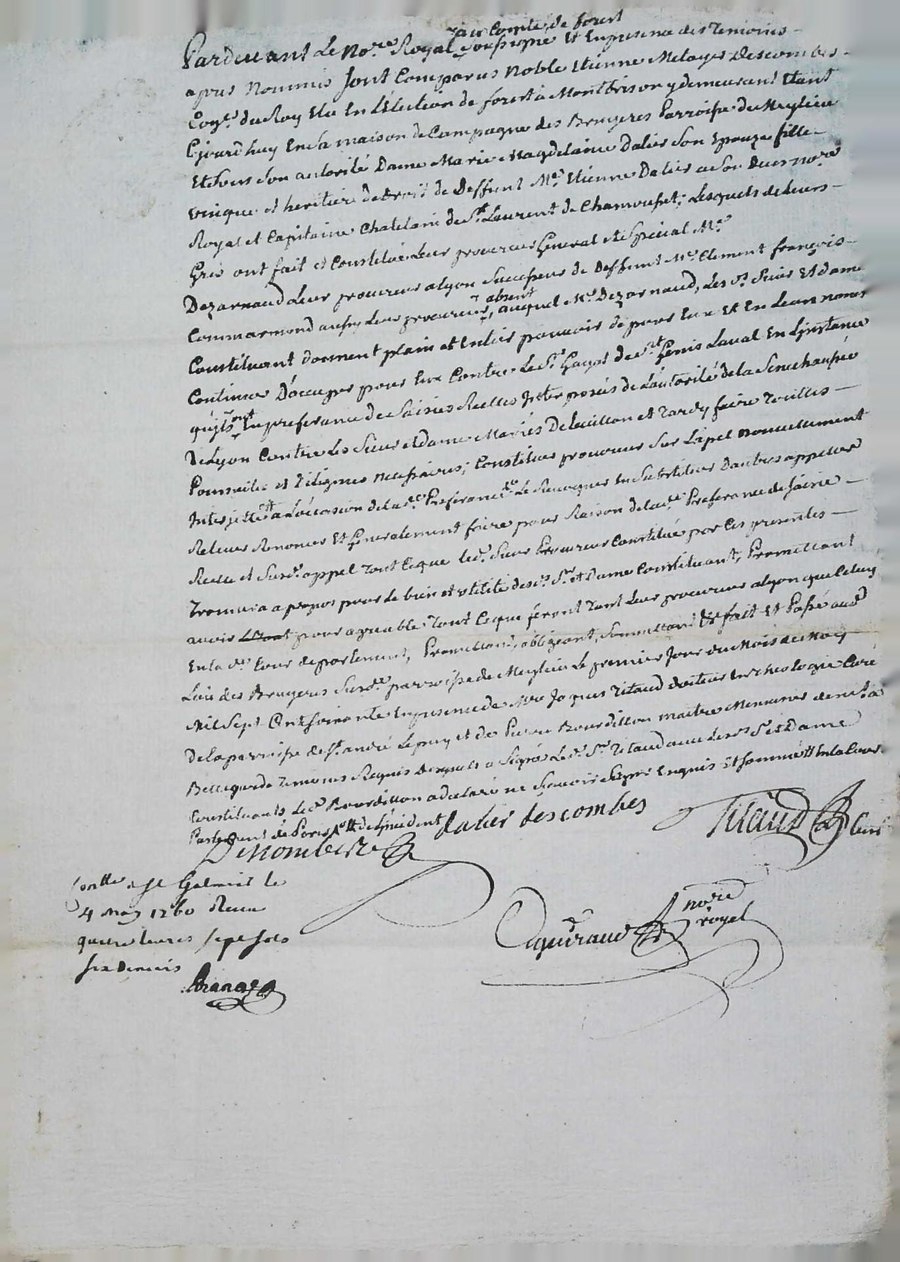 au Comté de forest
Pardevant Le No.re Royal soussigné Et En presence des Temoins
apres Nommés Sont Comparus Noble Etienne Descombes
Con.er du Roy Elu En L'Election de forest a Montbrison y demeurant Etant
Ejourdhuy En sa maison de Campagne des Bruyeres Parroisse de Meylieu
Et sous son autorité Dame Marie Magdelaine Dalier son Epouze fille
unique et heritiere de droit de Deffunt M.e Etienne Dalier no.re
Royal et Capitaine Chatelain de S.t Laurent de Chamousset; Lesquels de Leurs
Gré ont fait et Constitué Leur procureur General et Special M.e
Dezarnaud Leur procureur a Lyon Successeur de Deffunt M.e Clement françois
Commarmond aussy Leur procureur, absent auquel M.e Dezarnaud, Les s.rs Sieur Et dame
Constituant donnent plain et Entier pouvoir de pour Eux Et En Leur noms
Continuer D'occuper pour Eux Contre Le S.r Gayot de S.t Genis Laval En L'instance
qu'ils ont En preferance de Saisies Reelles Interposées de L'autorité de la Senechaussée
De Lyon Contre Les Sieur et dame Mariés et Tardy faire Touttes
Poursuittes et diligences necessaires; Constituer procureur Sur L'apel nouvellement
Interjetté a L'occasion de lad.e Preferance Le Revoquer En Substituer D'autres appeller
Relever Renoncer Et Generalement faire pour Raison de lad.e Preferance de Saisie
Reelle et Surd. appel Tout Ce que led. Sieur Procureur Constitué par Ces presentes
Trouvera a propos pour le bien et utilité desd. S.r et Dame Constituant, Promettant
avoir pour agreable Tout Ce que feront Tant Leur procureur a Lyon que Celuy
En la d.e Cour de parlement, Promettant, obligeant, Soumettant Et fait Et Passé aud.
Lieu des Bruyeres Surd.e parroisse de Meylieu Le premier Jour du Mois de May
Mil Sept Cent Soixante En presence de M.re Jaques Titaud docteur En theologie Curé
De la parroisse de S.t andré Le puy et de Pierre Bourdillon maitre Menuisier de
Bellegarde Temoins Requis Desquels a Signé Le d. S.r Titaud avec Les d. S.r et Dame
Constituants, Le d. Bourdillon a declaré ne Scavoir Signer Enquis Et Sommé En la Cour
Parlement de Paris
dalier descombes
Titaud Curé
Con.llé a St Galmier le
4 May 1760 Recu
quatre Livres sept Sols
six Deniers
no.re
royal